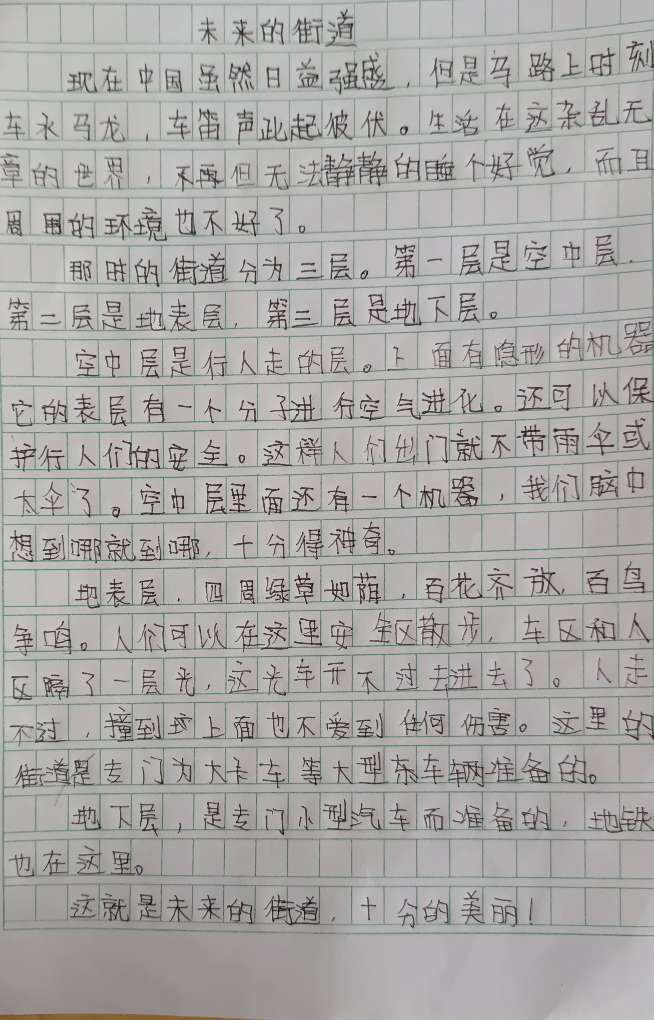 未来的街道
现在中国虽然日益强盛，但是马路上时刻
车水马龙，车笛声此起彼伏。生活在这杂乱无
章的世界，不再但无法静静的睡个好觉，而且
周围的环境也不好了。
那时的街道分为三层。第一层是空中层，
第二层是地表层，第三层是地下层。
空中层是行人走的层。上面有隐形的机器
它的表层有一个分子进行空气进化。还可以保
护行人们的安全。这样人们出门就不带雨伞或
太伞了。空中层里面还有一个机器，我们脑中
想到哪就到哪，十分得神奇。
地表层，四周绿草如荫，百花齐放，百鸟
争鸣。人们可以在这里安全区散步，车区和人
区隔了一层光，这光车开不过去进去了。人走
不过，撞到上面也不爱到任何伤害。这里的
街道是专门为大卡车等大型车辆准备的。
地下层，是专门小型汽车而准备的，地铁
也在这里。
这就是未来的街道，十分的美丽！